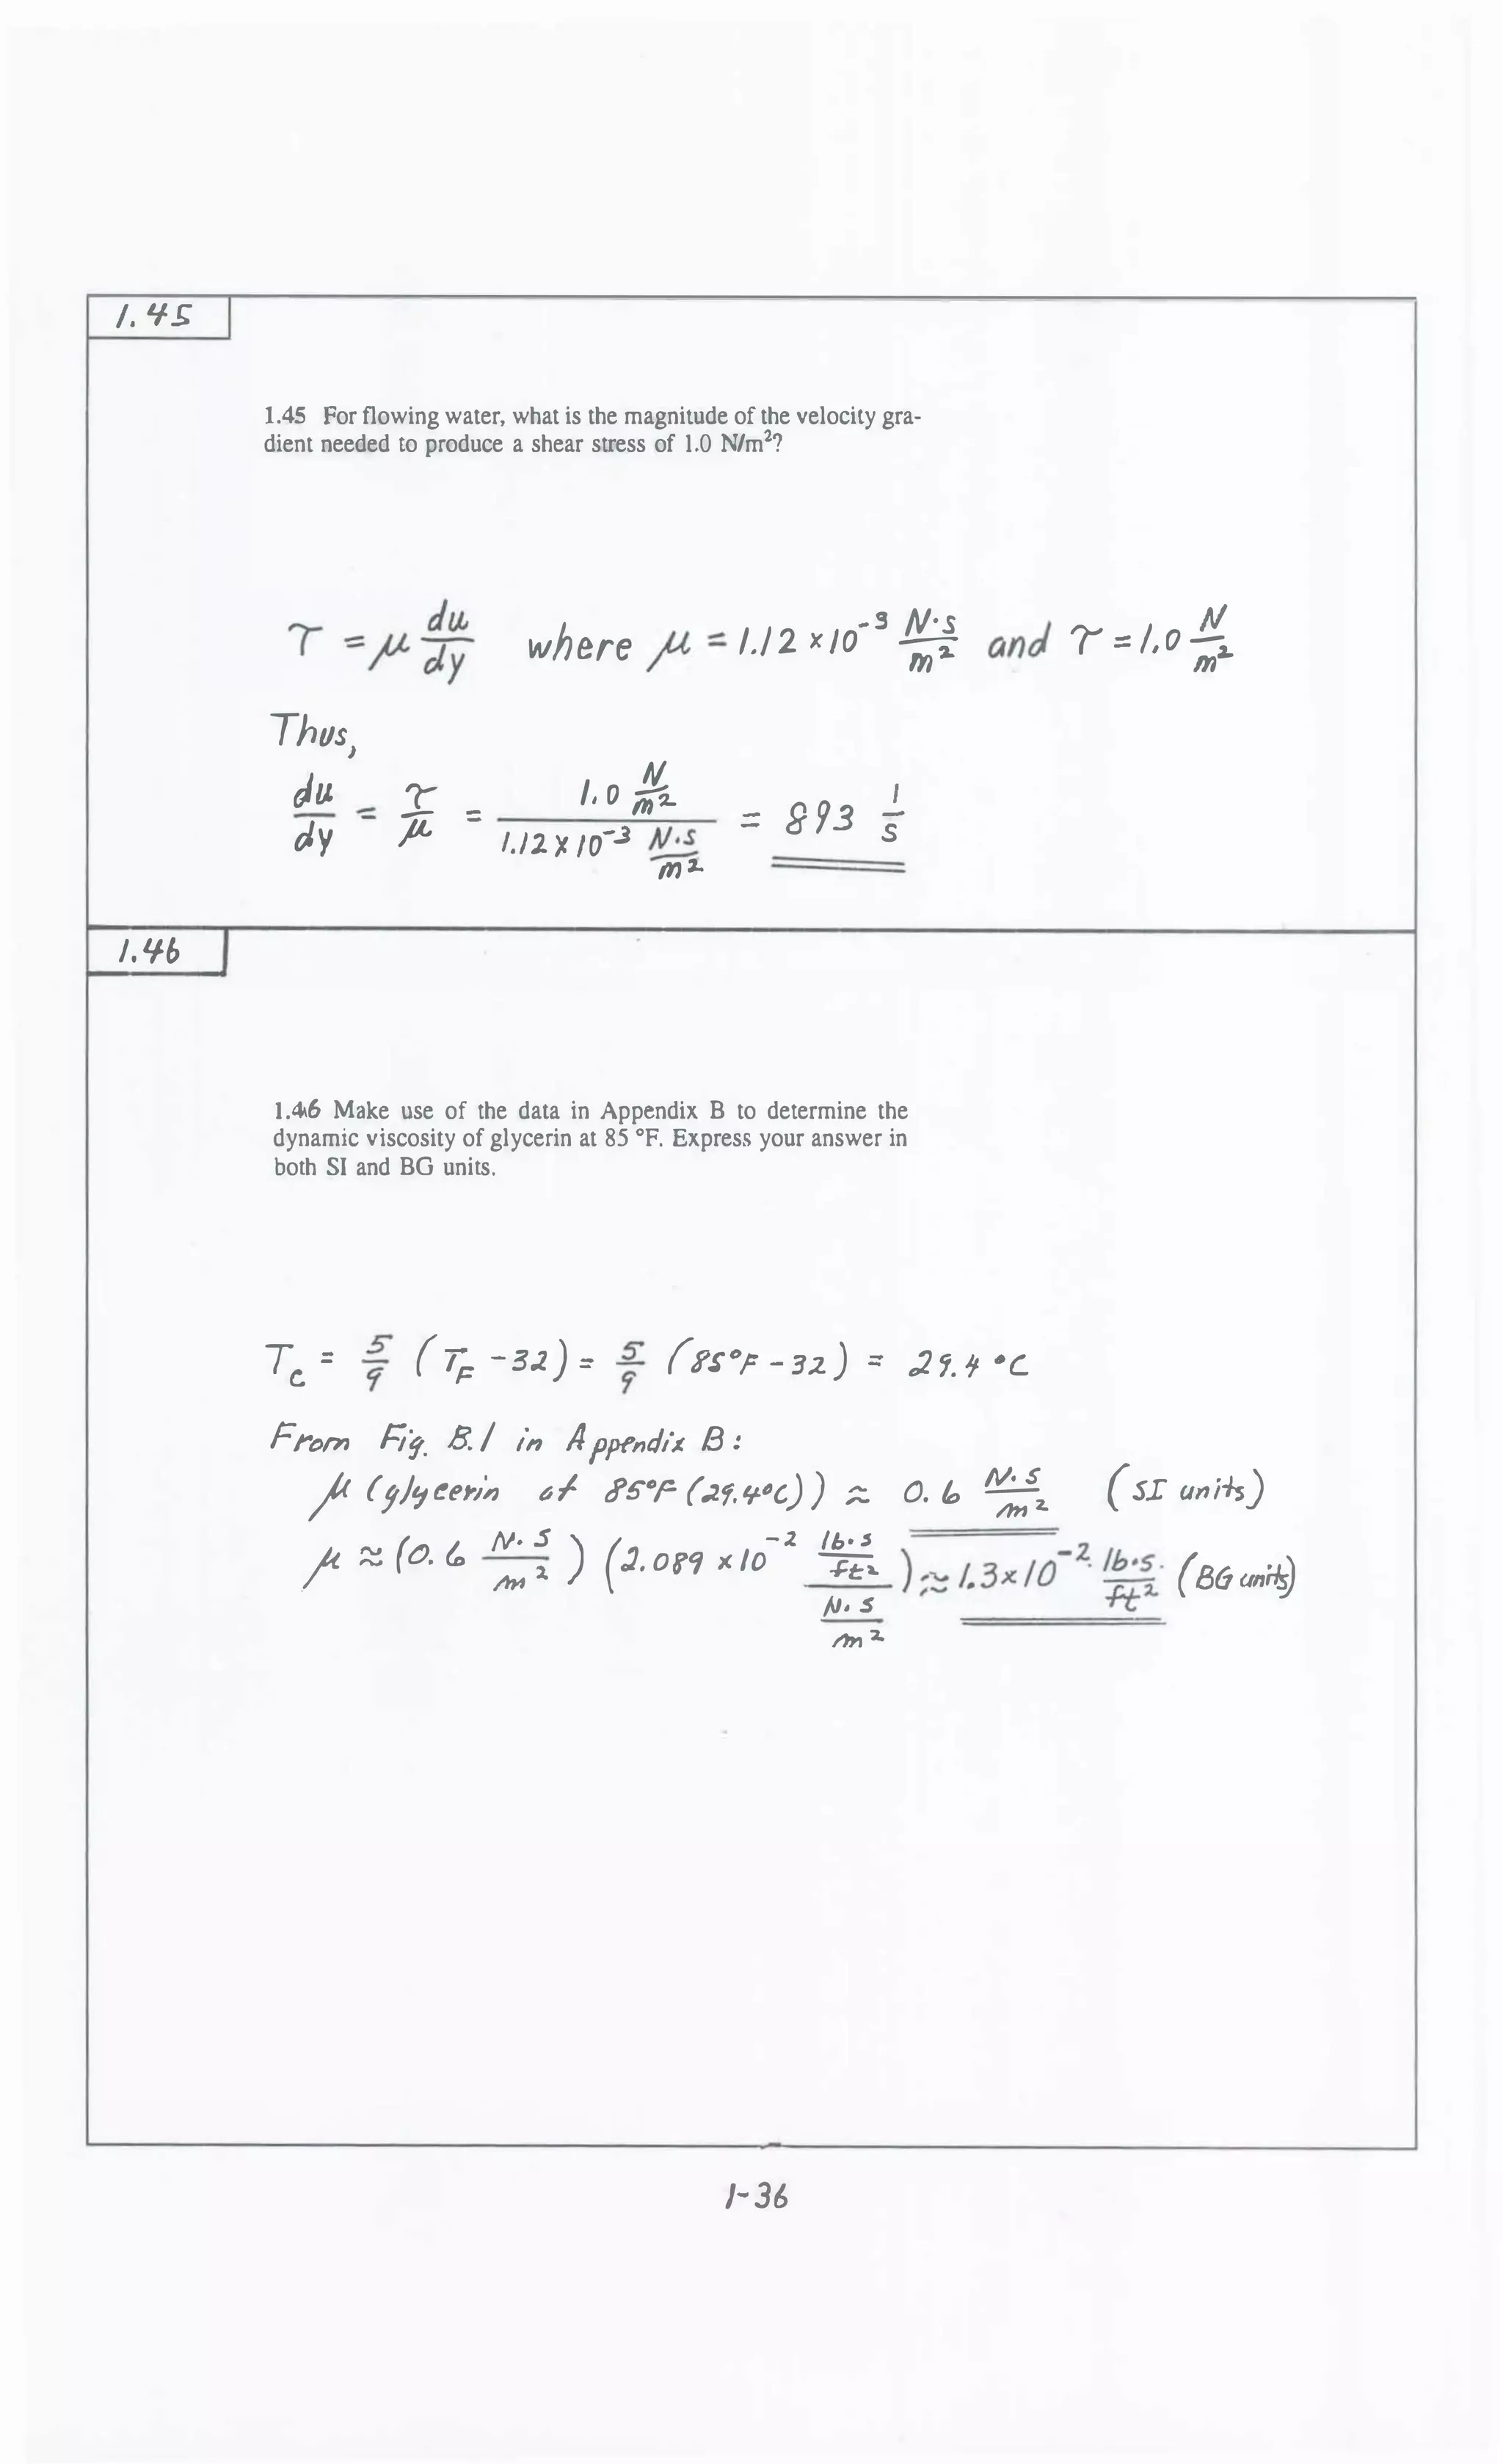 1.45
1.45 For flowing water, what is the magnitude of the velocity gra-
dient needed to produce a shear stress of 1.0 N/m²?
τ = μ du/dy where μ = 1.12 × 10⁻³ N·s/m² and τ = 1.0 N/m²
Thus,
du/dy = τ/μ = 1.0 N/m² / 1.12 × 10⁻³ N·s/m² = 893 1/s
1.46
1.46 Make use of the data in Appendix B to determine the
dynamic viscosity of glycerin at 85 °F. Express your answer in
both SI and BG units.
T_C = 5/9 (T_F - 32) = 5/9 (85°F - 32) = 29.4 °C
From Fig. B.1 in Appendix B:
μ (glycerin at 85°F (29.4°C)) ≈ 0.6 N·s/m² (SI units)
μ ≈ (0.6 N·s/m²) (2.089 × 10⁻² lb·s/ft² / N·s/m²) ≈ 1.3 × 10⁻² lb·s/ft² (BG units)
1-36